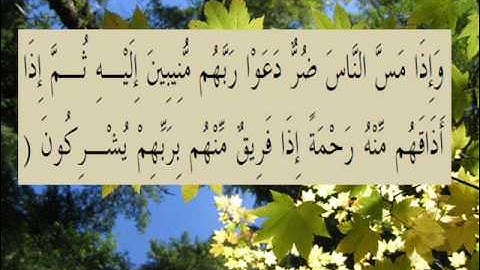 وَإِذَا مَسَّ النَّاسَ ضُرٌّ دَعَوْا رَبَّهُم مُّنِيبِينَ إِلَيْـــهِ ثُـــمَّ إِذَا
أَذَاقَهُم مِّنْهُ رَحْمَةً إِذَا فَرِيقٌ مِّنْهُم بِرَبِّهِمْ يُشْــرِكُونَ (